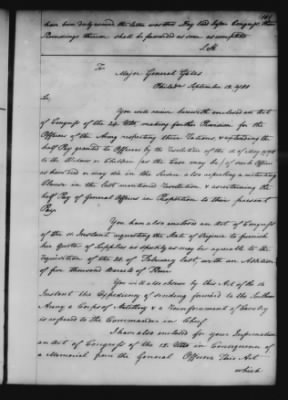 have been duly received the letter was then Day laid before Congress, their
Proceedings thereon shall be forwarded as soon as compleated
S. H.
To Major General Gates
Philada September 12, 1780
Sir,
You will receive herewith enclosed an Act
of Congress of the 24 Ulto, making further Provision for the
Officers of the Army respecting their Rations, & extending the
half Pay granted to Officers by the Resolution of the 15 of May 1778
to the Widows or Children (as the Case may be) of such Officers
as have died or may die in the Service also repealing a restricting
Clause in the last mentioned Resolution & ascertaining the
half Pay of General Officers in Proportion to their present
Pay.
You have also enclosed an Act of Congress
of the 11 Instant requesting the State of Virginia to furnish
her Quotas of Supplies as speedily as may be agreeable to the
Requisition of the 25 of February last, with an Addition
of five thousand Barrels of Flour
You will also observe by this Act of the 11
Instant the Expediency of sending forward to the Southern
Army a Corps of Artillery & a Reinforcement of Cavalry
is referred to the Commander in Chief
I have also enclosed for your Information
an Act of Congress of the 12 Ulto in Consequence of
a Memorial from the General Officers This Act
which